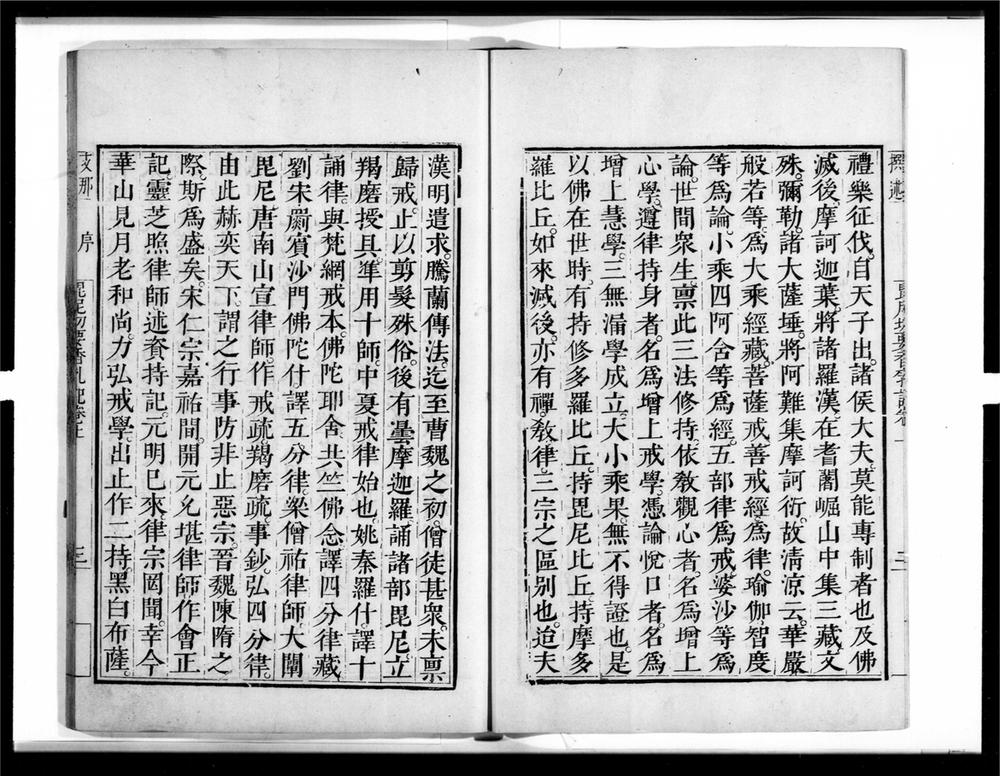 禮樂征伐。自天子出。諸侯大夫。莫能專制者也。及佛
滅後。摩訶迦葉。將諸羅漢。在耆闍崛山中集三藏。文
殊。彌勒。諸大薩埵。將阿難集摩訶衍。故清涼云。華嚴
般若等。爲大乘經藏。菩薩戒善戒經。爲律。瑜伽智度
等爲論。小乘四阿含等爲經。五部律。爲戒。婆沙等。爲
論。世間衆生。禀此三法修持。依敎觀心者。名爲增上
心學。遵律持身者。名爲增上戒學。憑論悅口者。名爲
增上慧學。三無漏學成立。大小乘果。無不得證也。是
以佛在世時。有持修多羅比丘。持毘尼比丘。持摩多
羅比丘。如來滅後。亦有禪。敎。律。三宗之區别也。迨夫
漢明遣求。騰蘭傳法。迄至曹魏之初。僧徒甚衆。未禀
歸戒。止以剪髮殊俗。後有曇摩迦羅。誦諸部毘尼。立
羯磨授具。準用十師。中夏戒律始也。姚秦羅什。譯十
誦律。與梵網戒本。佛陀耶舍。共竺佛念譯四分律藏
劉宋罽賓沙門佛陀什。譯五分律。梁僧祐律師大闡
毘尼。唐南山宣律師。作戒疏。羯磨疏。事鈔。弘四分律。
由此赫奕天下。謂之行事防非止惡宗。晉魏陳隋之
際。斯爲盛矣。宋仁宗嘉祐間。開元允堪律師作會正
記。靈芝照律師述資持記。元明已來。律宗罔聞。幸今
華山見月老和尚。力弘戒學。出止作二持。黑白布薩。
支那
序
三